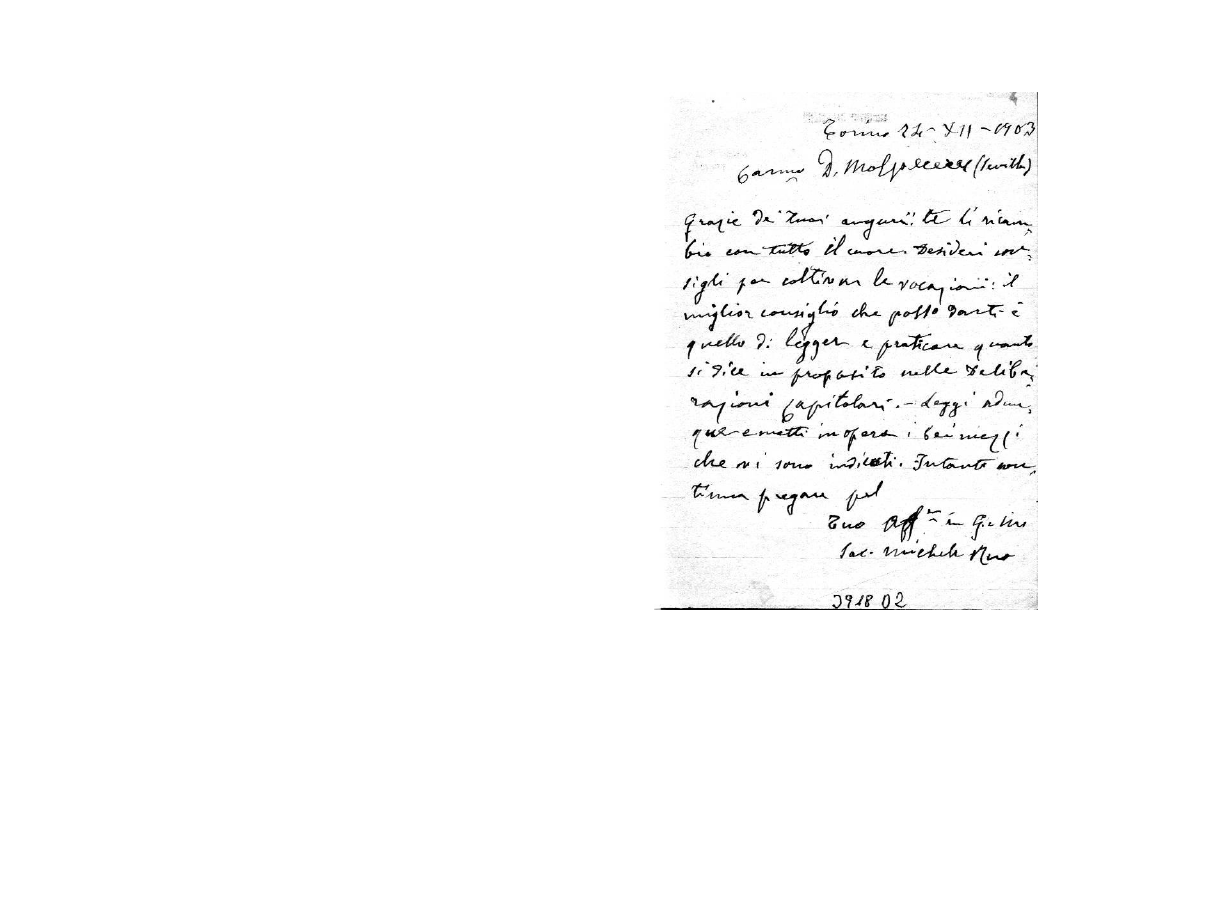 Torino 24-XII-1903
Carmo D. (Siviglia)
Grazie de' tuoi auguri: te li ricam-
bio con tutto il cuore. Desideri con-
sigli per coltivar le vocazioni: il
miglior consiglio che posso darti è
quello di legger e praticare quanto
si dice in proposito nelle Delibe-
razioni Capitolari. - Leggi adun-
que e metti in opera i bei mezzi
che vi sono indicati. Intanto con-
tinua pregare pel
Tuo Aff.mo in G. e M.
Sac. Michele Rua
3918 02